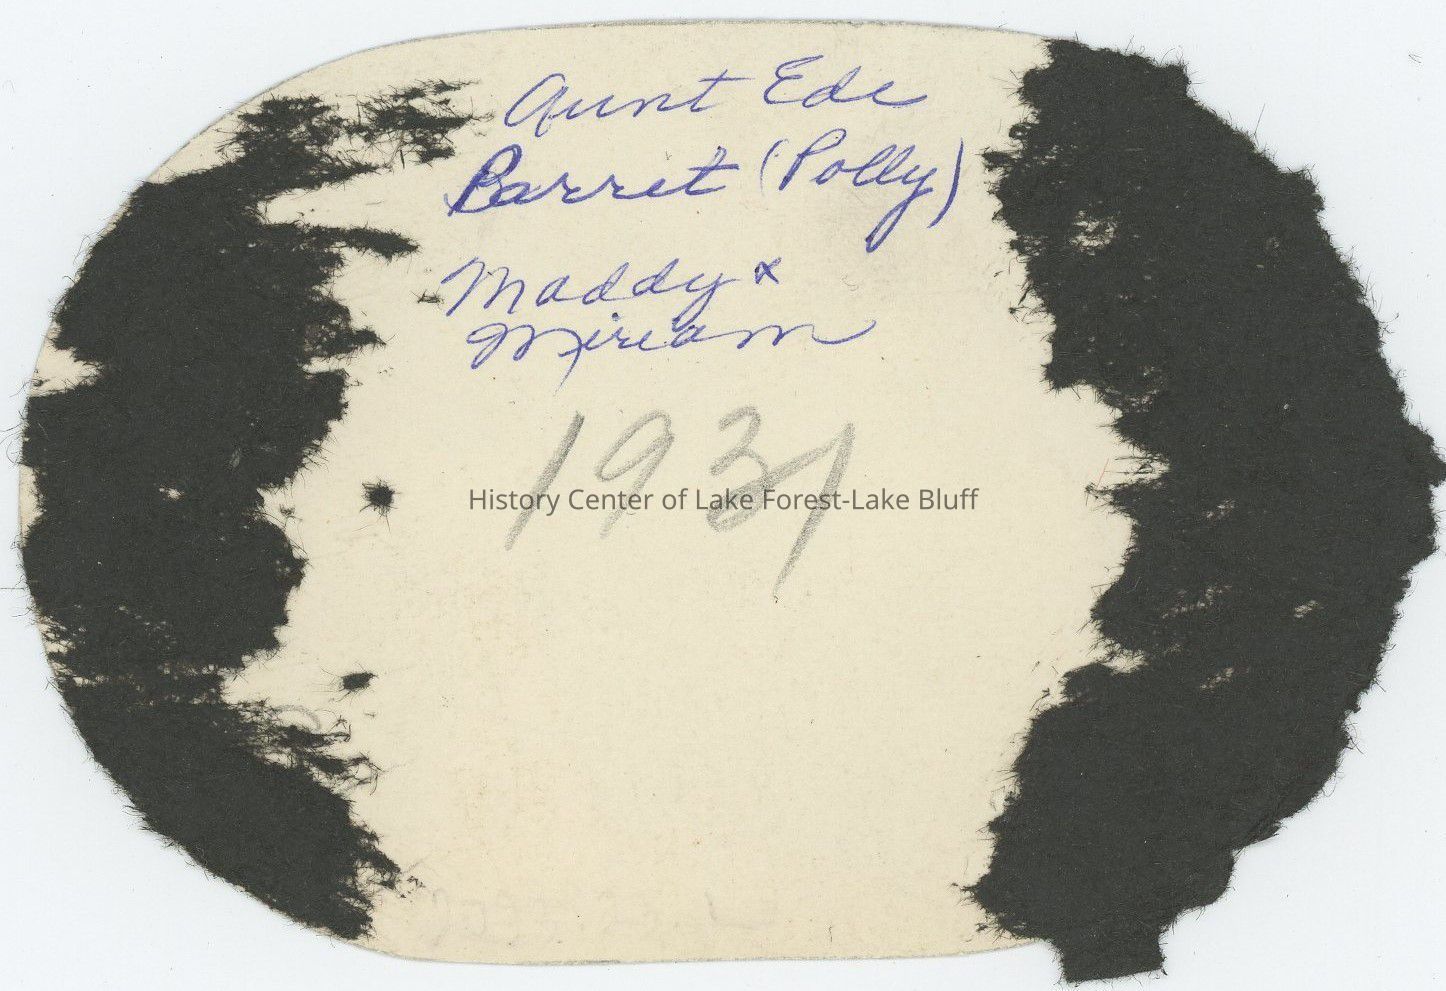 Aunt Ede
Barret (Polly)
Maddy x
Miriam
1931
History Center of Lake Forest-Lake Bluff